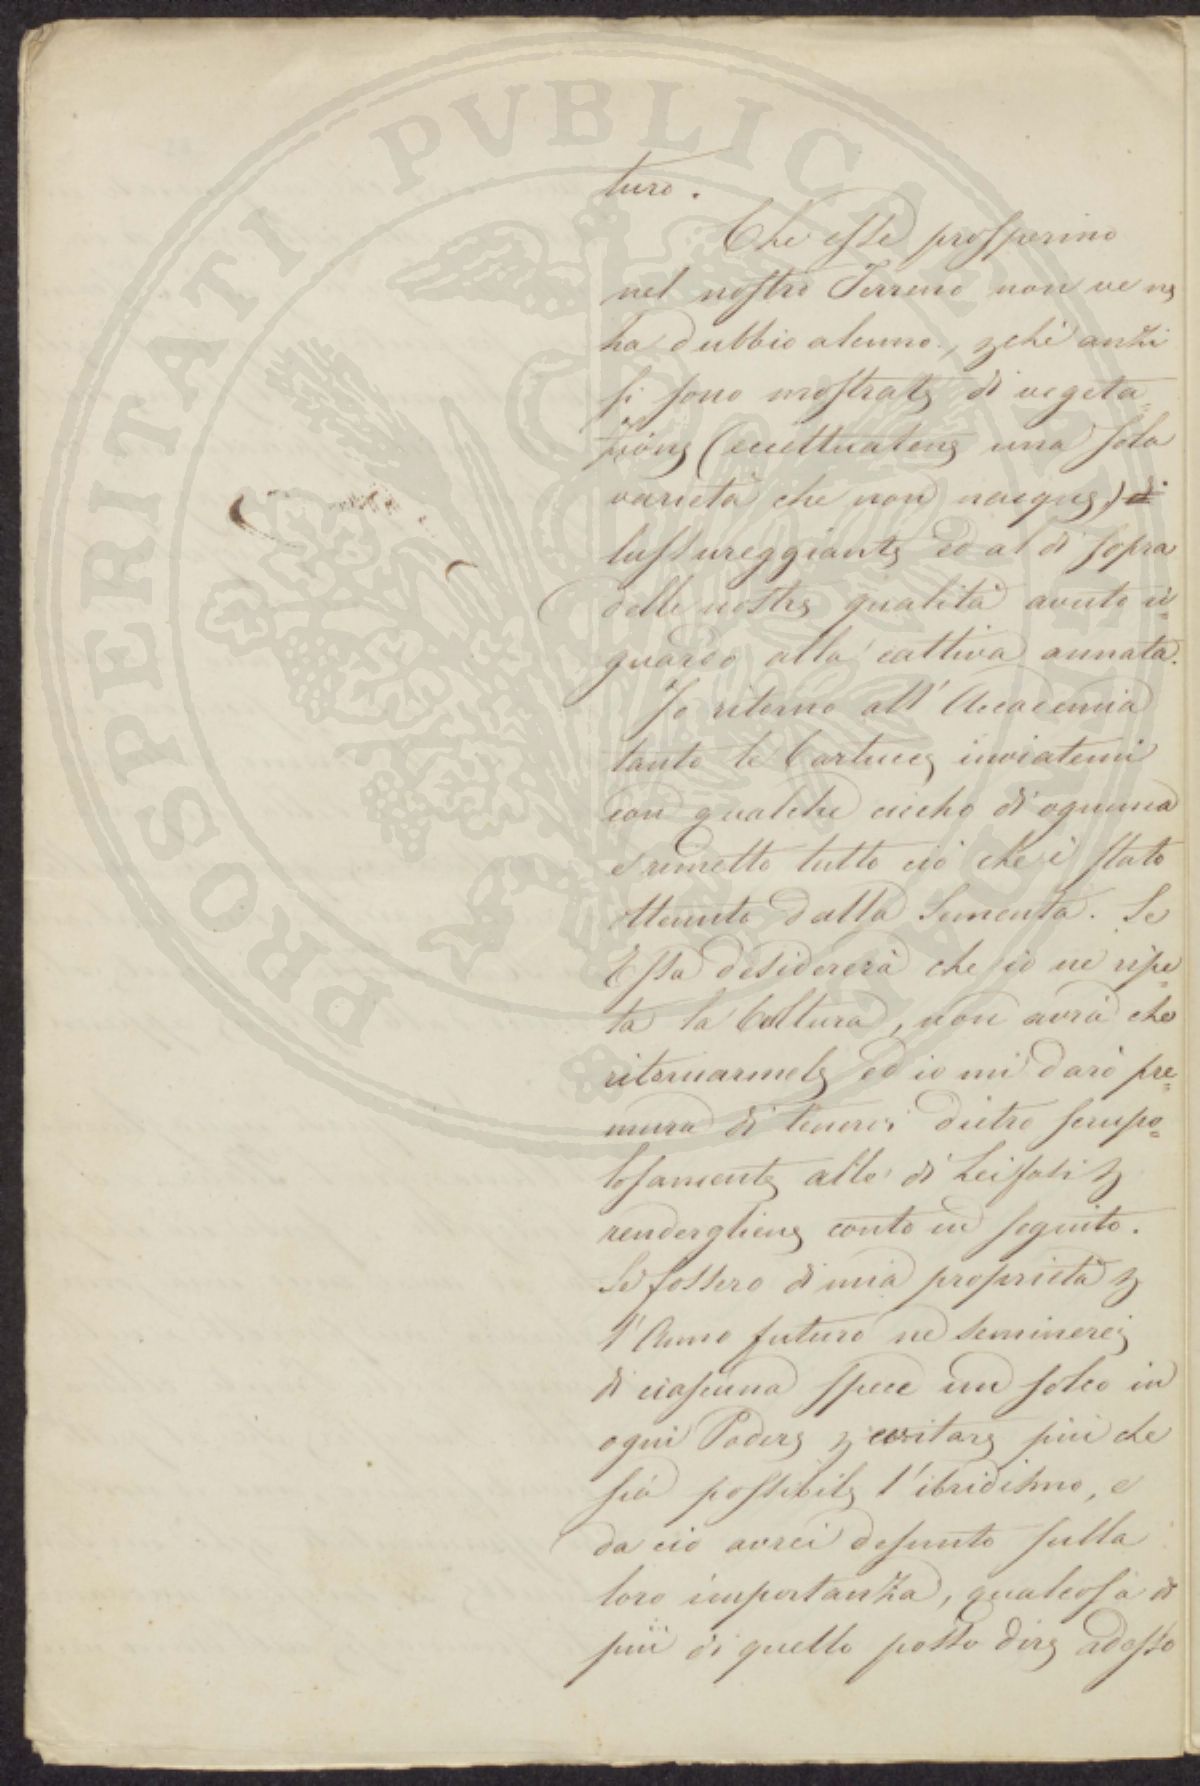 PROSPERITATI PVBLICAE AVGENDAE
turo.
Che esse prosperino
nel nostro Terreno non ve ne
ha dubbio alcuno, pchè anzi
si sono mostrate di vegeta=
zione (eccettuatone una sola
varietà che non nacque) di
lussureggiante ed al di sopra
delle nostre qualità avuto ri=
guardo alla cattiva annata.
Io ritorno all'Accademia
tanto le Cartucce inviatemi
con qualche chicco di ognuna
e rimetto tutto ciò che è stato
ottenuto dalla Sementa. Se
Essa desidererà che io ne ripe=
ta la Coltura, non avrà che
ritornarmele ed io mi darò pre=
mura di tenerci dietro scrupo=
losamente allo di Lei p
rendergliene conto in seguito.
Se fossero di mia proprietà p
l'Anno futuro ne seminerei
di ciascuna spece un solco in
ogni Podere p evitare più che
sia possibile l'ibridismo, e
da ciò avrei desunto sulla
loro importanza, qualcosa di
più di quello posso dire adesso